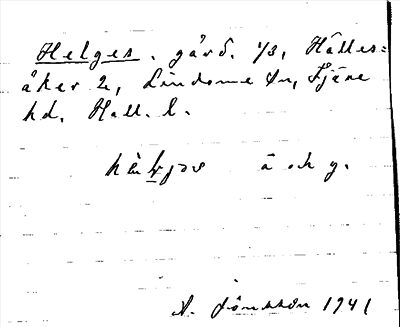 Helges. gård. 1/8, Hälles=
åker 2, Lindome sn, Fjäre
hd, Hall. l.
hàlyjəs ä och y.
A. Jönsson 1941